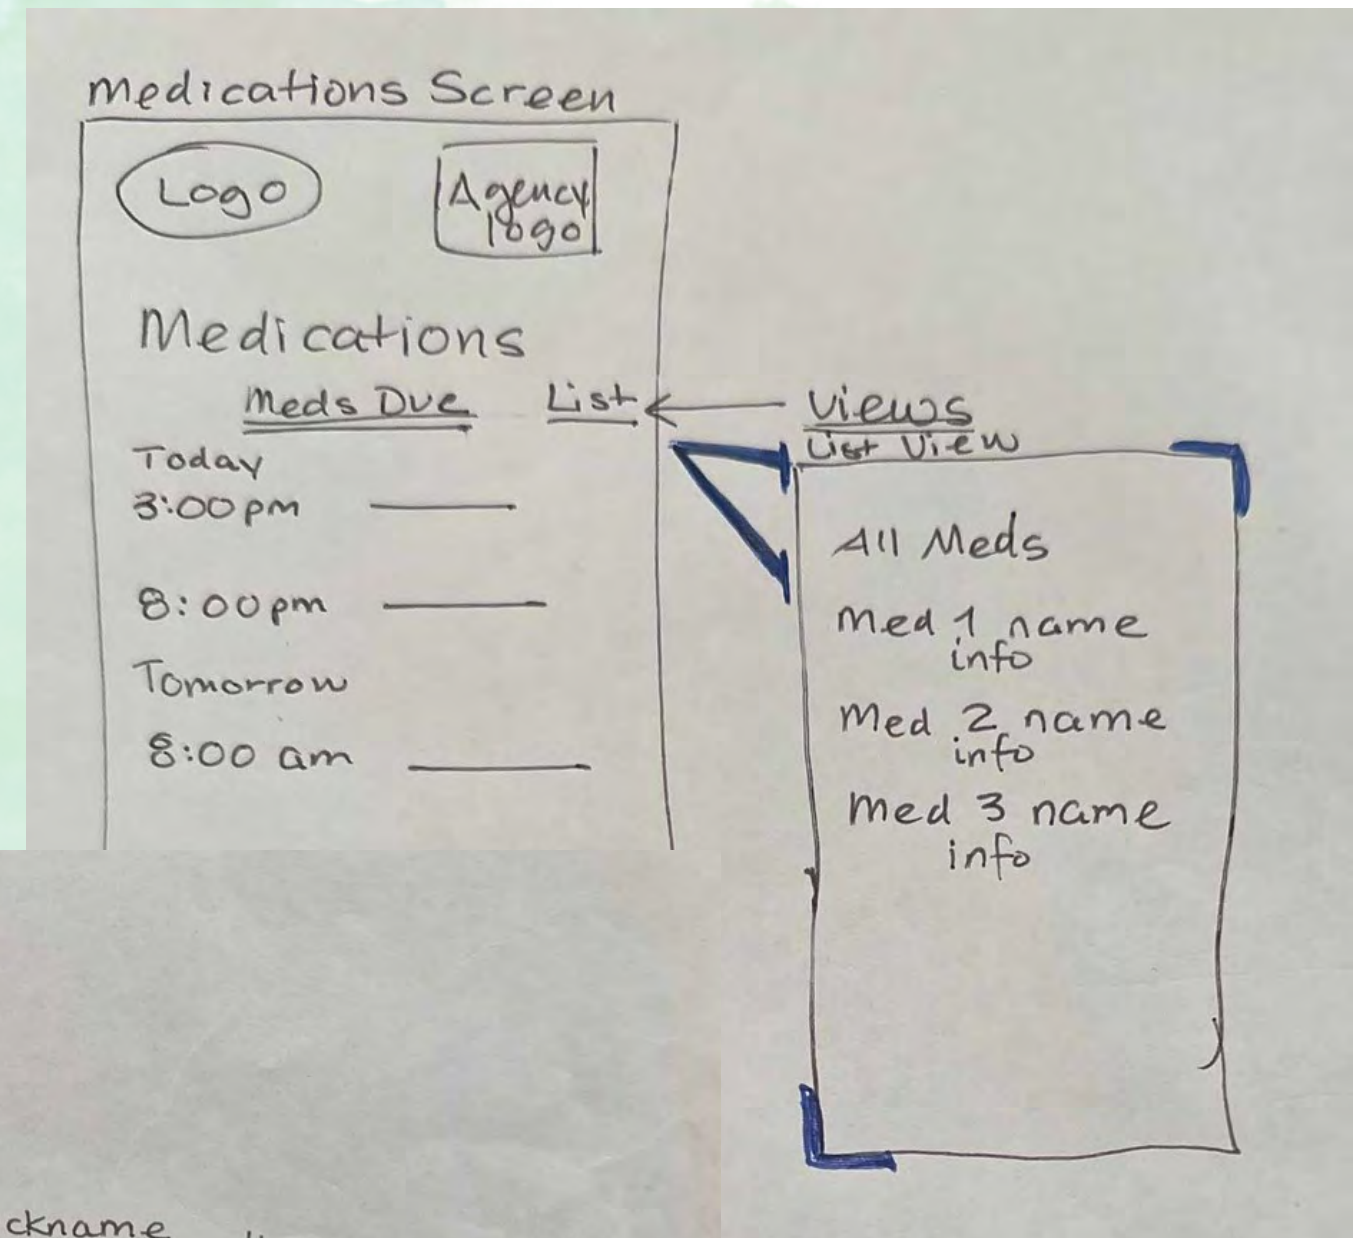 Medications Screen
Logo
Agency
logo
Medications
Meds Due List
Today
3:00pm
8:00pm
Tomorrow
8:00 am
Views
List View
All Meds
Med 1 name
info
Med 2 name
info
Med 3 name
info
ckname